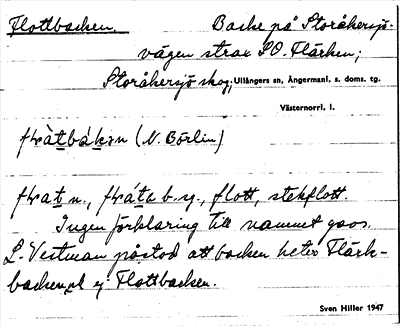 Flottbacken Backe på Storåkersjö-
vägen strax SO. Flärken;
Storåkersjö skog, Ullångers sn, Ångermanl. s. doms. tg.
Västernorrl. l.
(N. Börlin)
n., b. sg., flott, stekflott.
Ingen förklaring till namnet gavs.
L. Vestman påstod att backen heter Flärk-
backen, ej Flottbacken.
Sven Hiller 1947